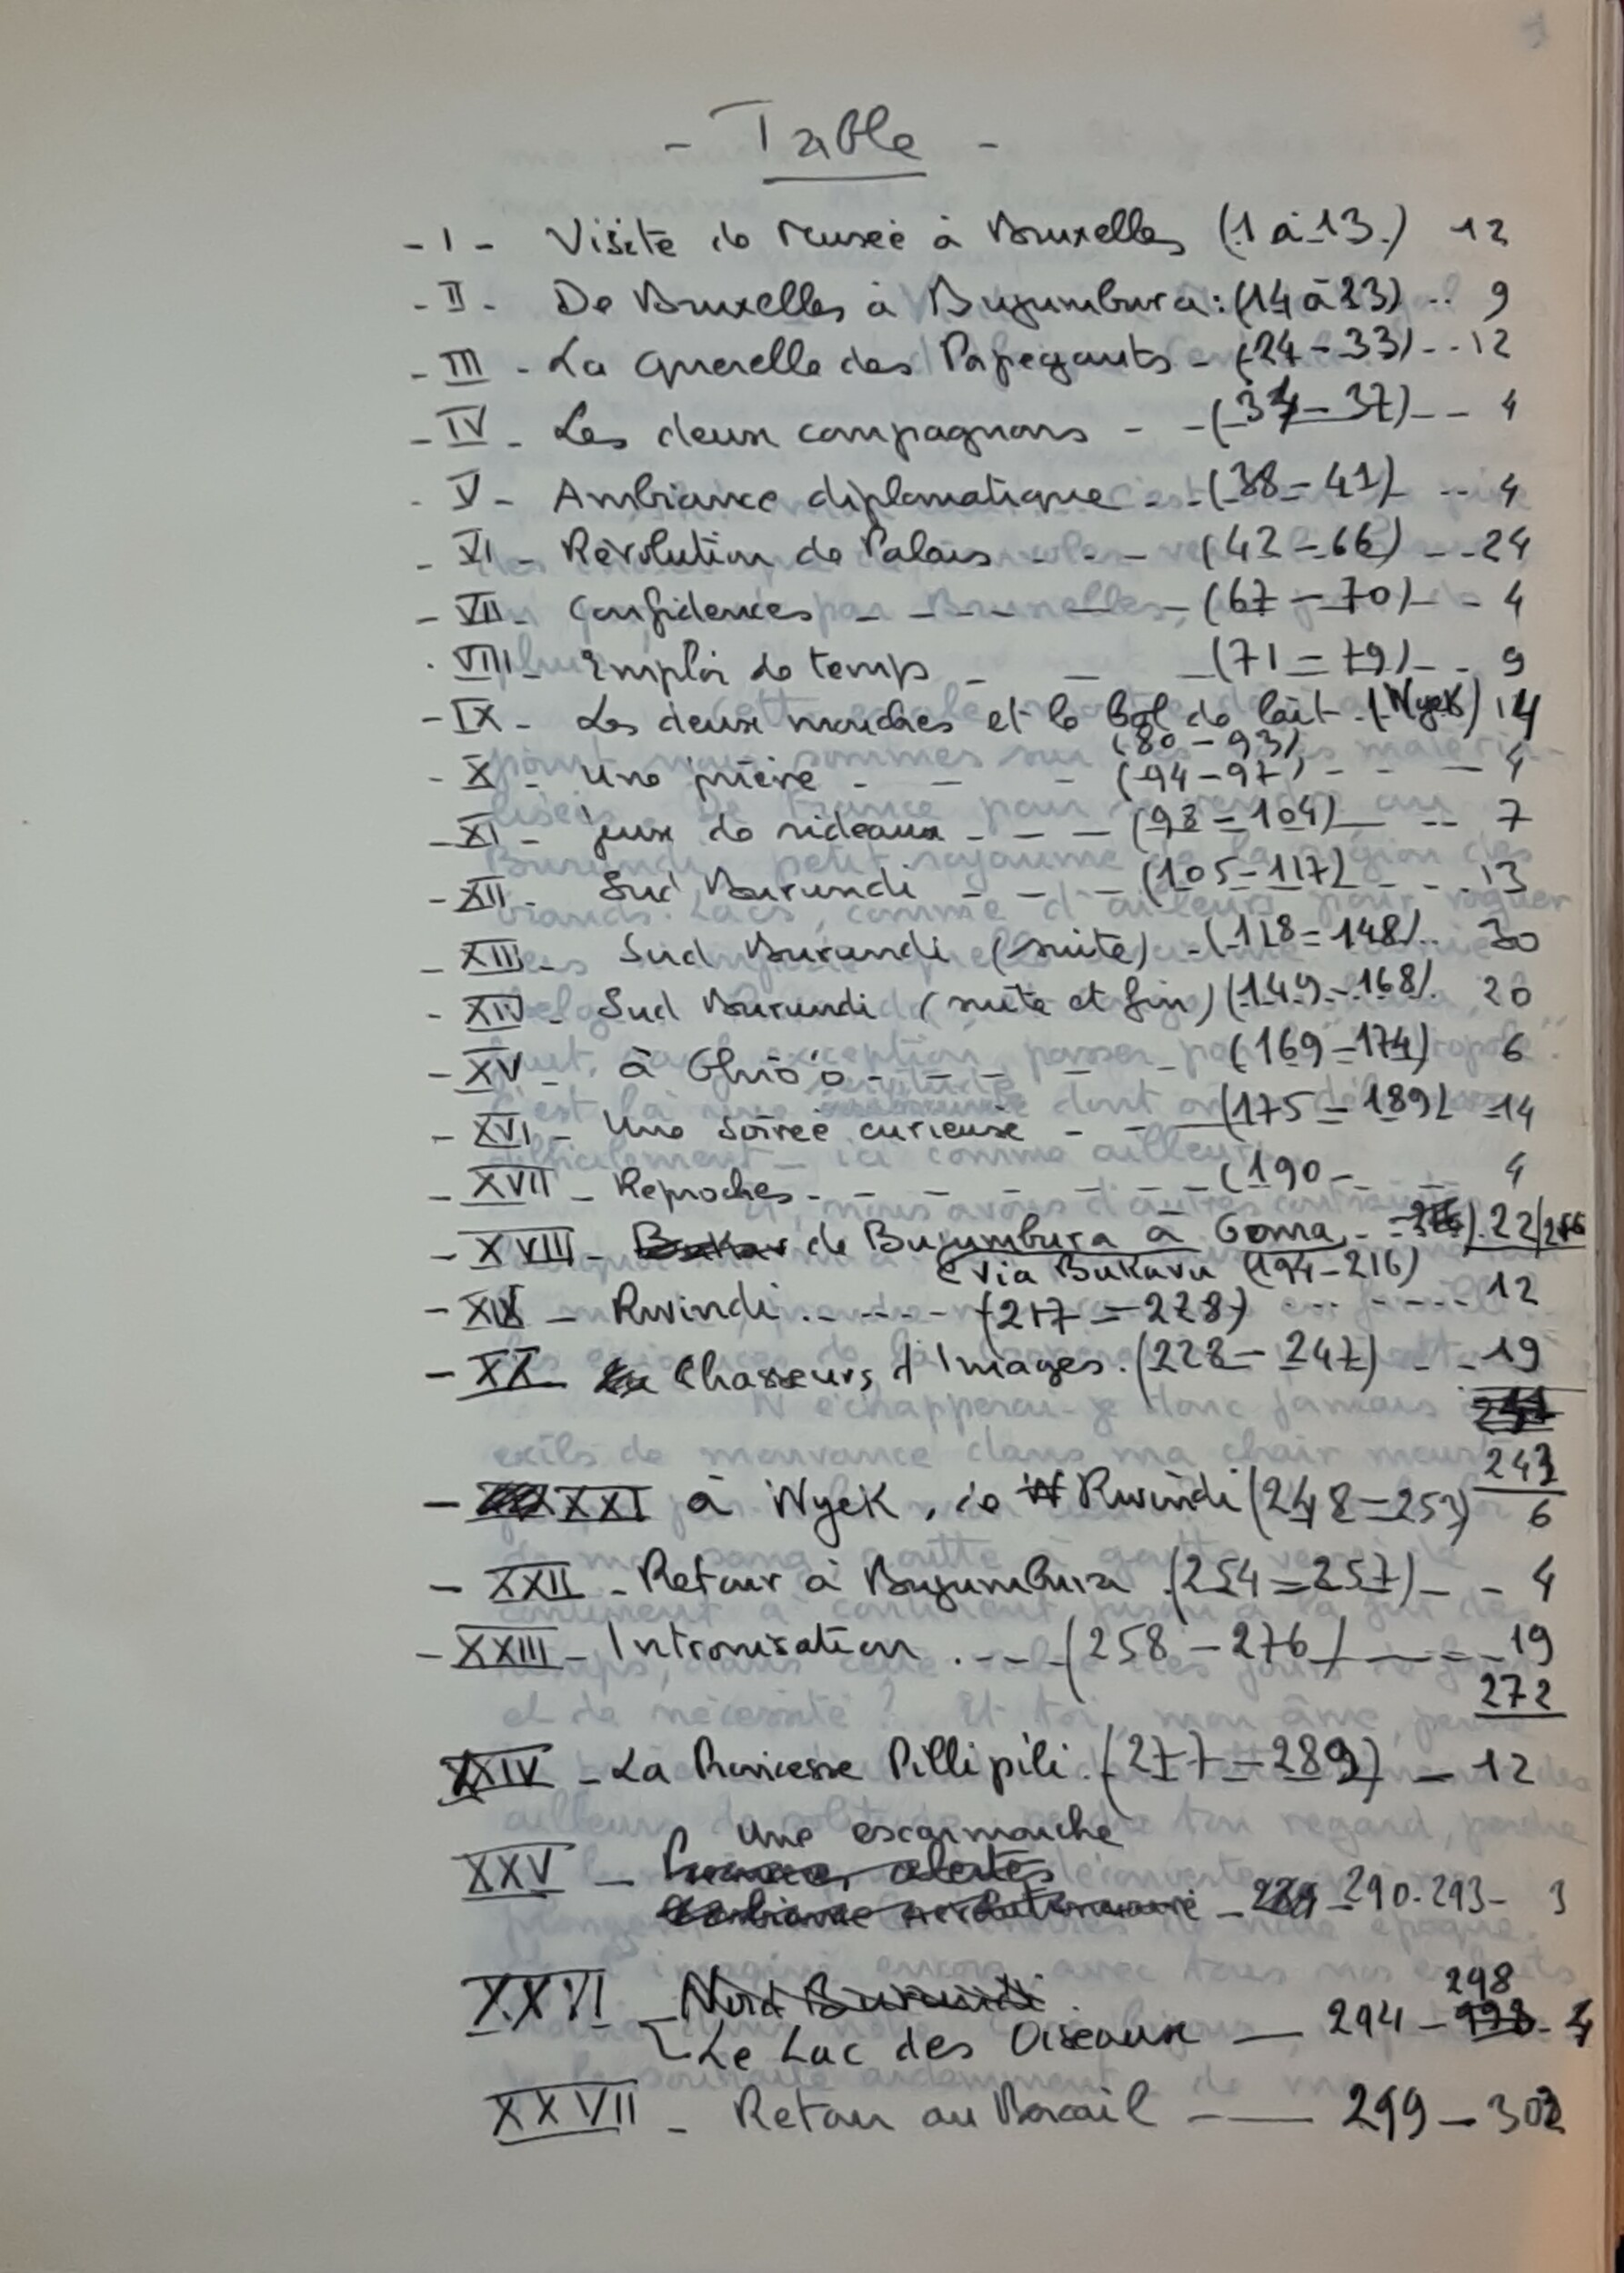 - Table -
- I - Visite de Musée à Bruxelles (1 à 13.) 12
- II - De Bruxelles à Bujumbura : (14 à 23) .. 9
- III - La Querelle des Papegauts - (24 - 33) - - 12
- IV - Les deux compagnons - - (34 - 37) - - 4
- V - Ambiance diplomatique - - (38 - 41) - - 4
- VI - Révolution de Palais - - - (42 - 66) - - 24
- VII - Confidences - - - - - - (67 - 70) - - 4
- VIII - Emploi de temps - - - (71 - 79) - - 9
- IX - Les deux mouches et le bol de lait - (Nyek) 14
(80 - 93)
- X - Une prière - - - (94 - 97) - - - 4
- XI - jeux de rideaux - - - (98 - 104) - - 7
- XII - Sud Burundi - - - (105 - 117) - - 13
- XIII - Sud Burundi (suite) - (118 - 148) .. 30
- XIV - Sud Burundi (suite et fin) (149 - 168) . 20
- XV - à - - - - (169 - 174) 6
- XVI - Une Soirée curieuse - - - (175 - 189) - 14
- XVII - Reproches - - - - - - - (190 - - - 4
- XVIII - de Bujumbura à Goma - 22/216
via Bukavu (194 - 216)
- XIX - Rwindi . - - - - (217 - 228) ... - - - - 12
- XX - Chasseurs d'Images . (228 - 247) - - 19
243
- XXI à Nyek, de Rwindi (248 - 253) 6
- XXII - Retour à Bujumbura (254 - 257) - - 4
- XXIII - Intronisation . - - - (258 - 276) - - - 19
272
XXIV - La Princesse Pillipili . (277 - 289) - 12
Une escarmouche
XXV - alertes
- 290 - 293 - 3
298
XXVI - Nord Burundi
Le Lac des Oiseaux - 294 - 4
XXVII - Retour au Bercail - 299 - 302